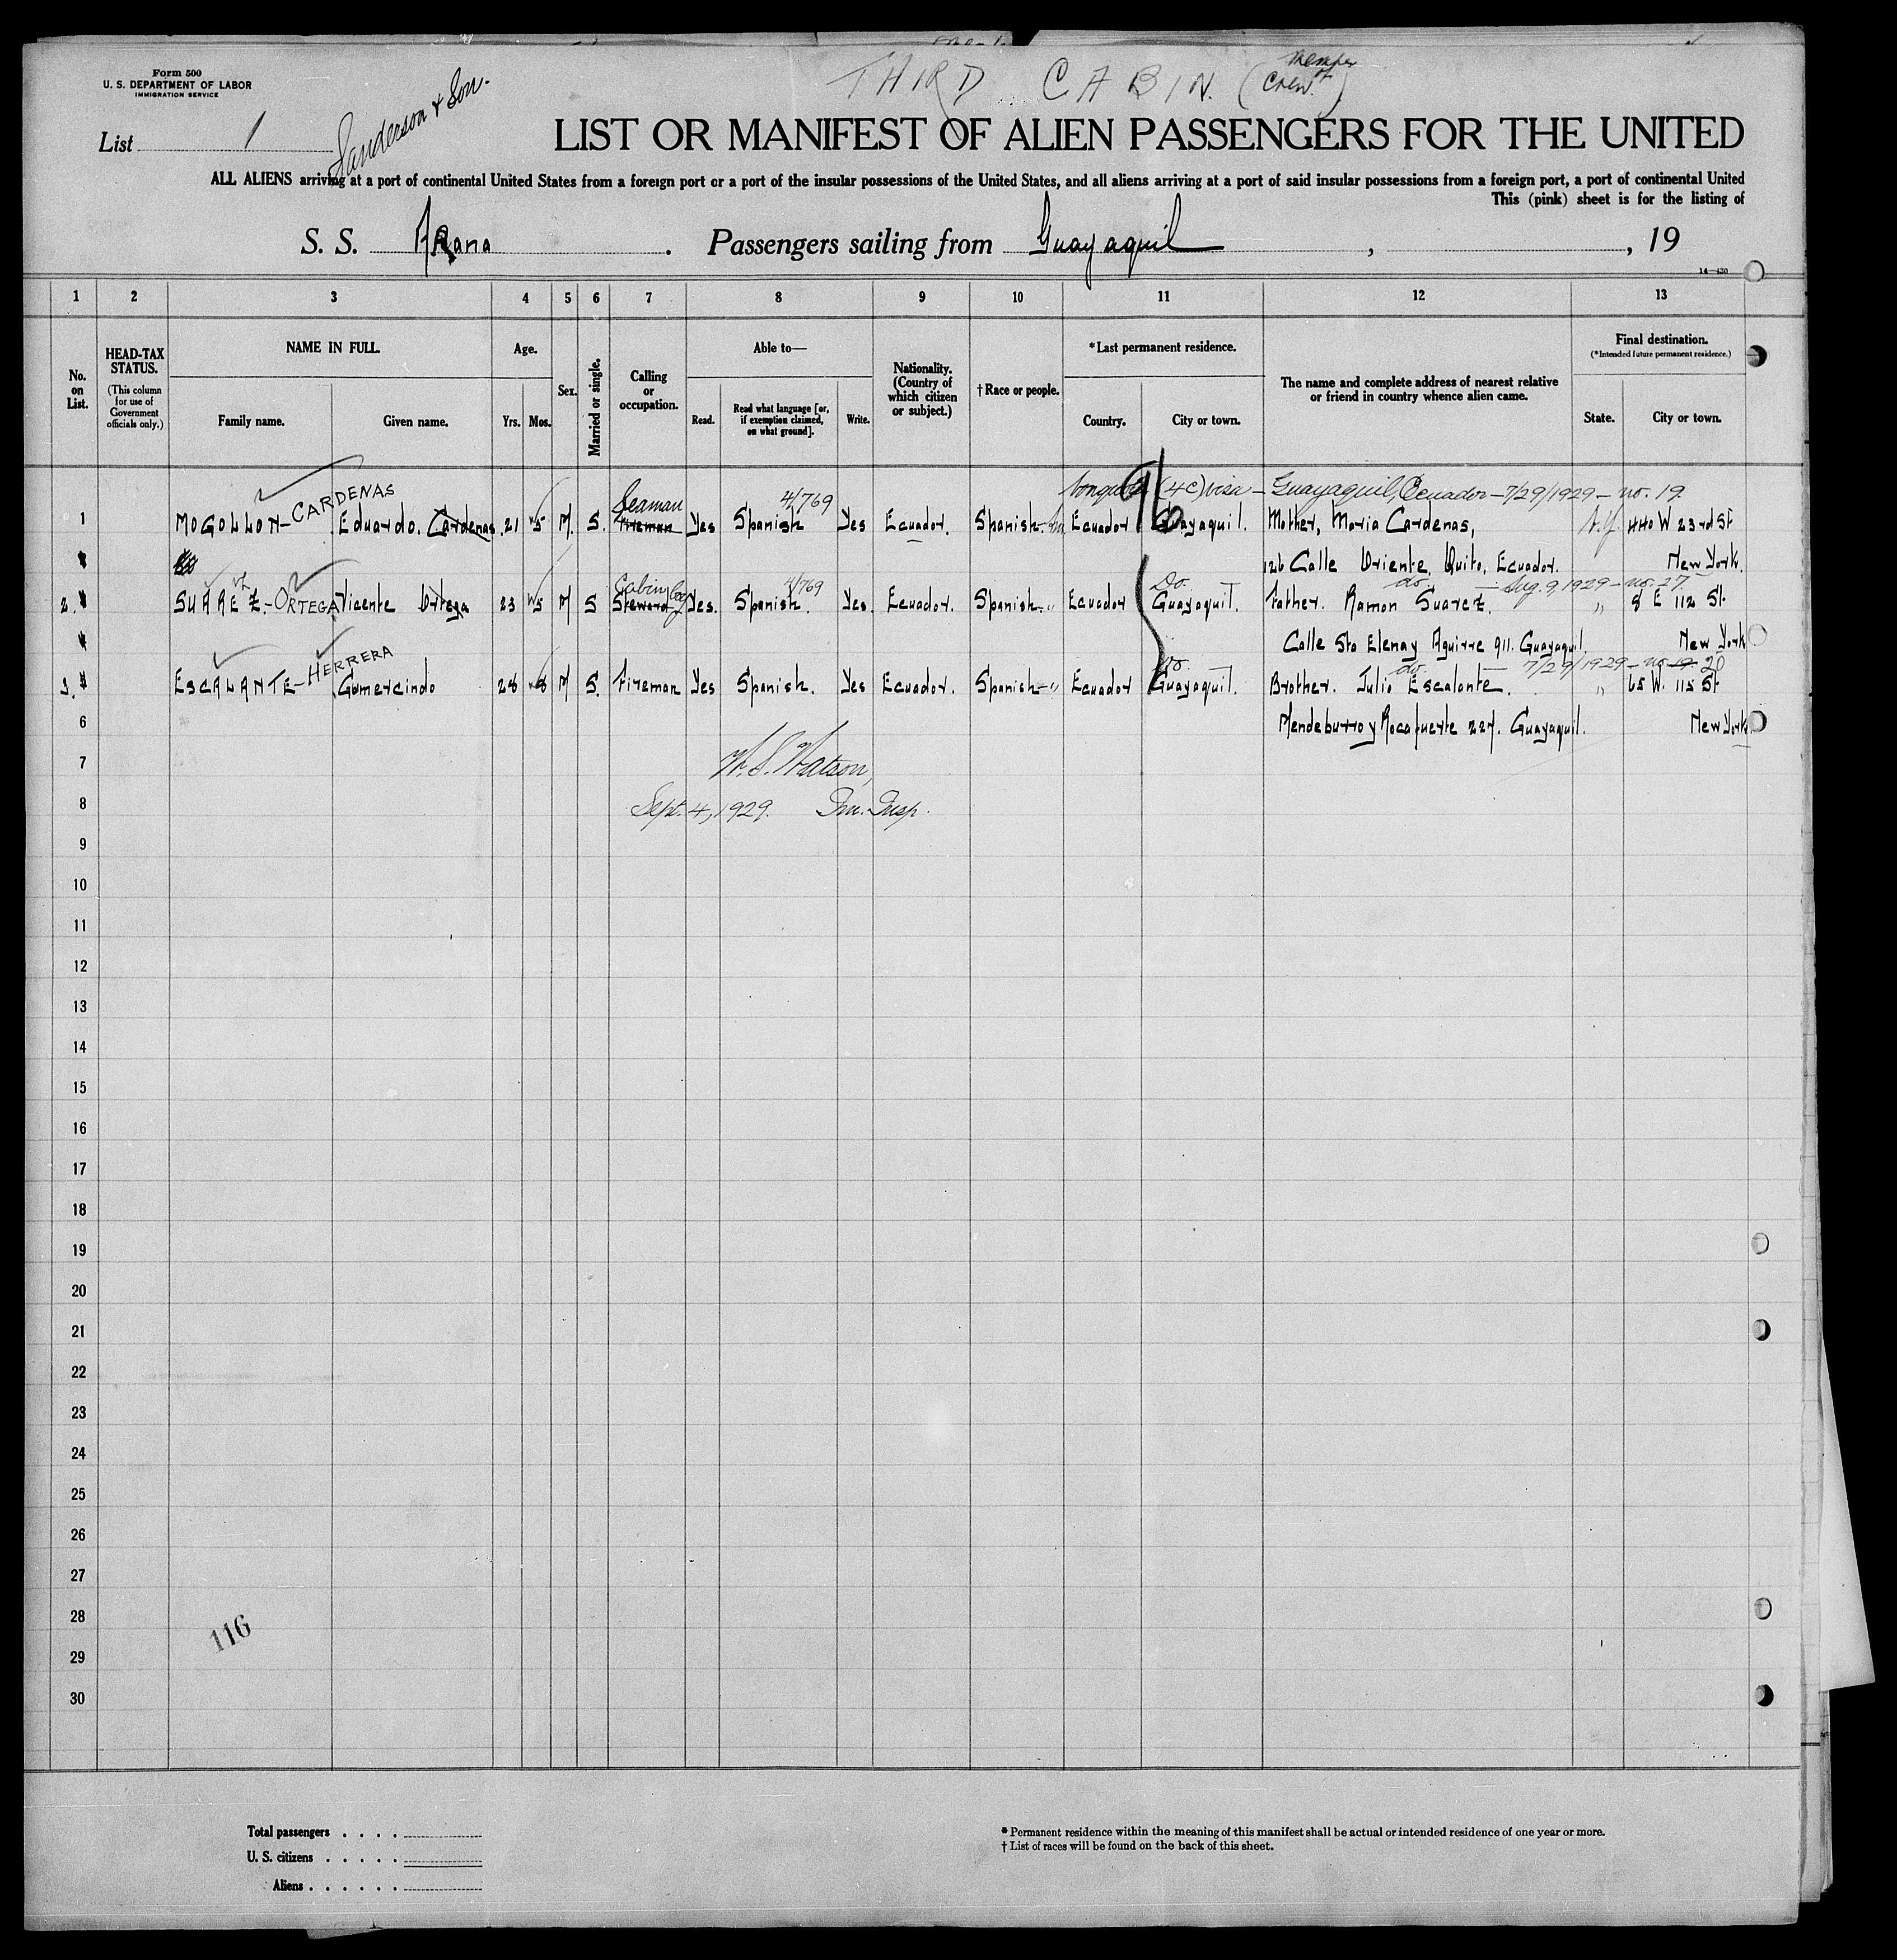 Form 500
U. S. DEPARTMENT OF LABOR
IMMIGRATION SERVICE
THIRD CABIN. (member of Crew.)
List 1
Sanderson & Son.
LIST OR MANIFEST OF ALIEN PASSENGERS FOR THE UNITED
ALL ALIENS arriving at a port of continental United States from a foreign port or a port of the insular possessions of the United States, and all aliens arriving at a port of said insular possessions from a foreign port, a port of continental United
This (pink) sheet is for the listing of
S. S. Arana. Passengers sailing from Guayaquil, , 19
14—430
1 2 3 4 5 6 7 8 9 10 11 12 13
No. on List.
HEAD-TAX STATUS.
(This column for use of Government officials only.)
NAME IN FULL.
Family name. Given name.
Age.
Yrs. Mos.
Sex.
Married or single.
Calling or occupation.
Able to—
Read. Read what language [or, if exemption claimed, on what ground]. Write.
Nationality. (Country of which citizen or subject.)
† Race or people.
*Last permanent residence.
Country. City or town.
The name and complete address of nearest relative or friend in country whence alien came.
Final destination.
(*Intended future permanent residence.)
State. City or town.
Seaman 4/769 (4C) visa – Guayaquil, Ecuador – 7/29/1929 – no. 19.
1 MOGOLLON-CARDENAS Eduardo. Cardenas. 21 5 M. S. Fireman Yes Spanish Yes Ecuador. Spanish Ecuador Guayaquil. Mother, Maria Cardenas, N.Y. 440 W 23rd St
126 Calle Oriente, Quito, Ecuador. New York.
Cabin boy 4/769 Do. do. – Aug. 9, 1929 – no. 27
2. SUAREZ-ORTEGA Vicente Ortega 23 5 M S Steward Yes. Spanish. Yes. Ecuador. Spanish " Ecuador Guayaquil. Father. Ramon Suarez. " 8 E 112 St
Calle Sta Elena y Aguirre 911. Guayaquil. New York
Do. do. – 7/29/1929 – no. 19 20
3. ESCALANTE-HERRERA Gumercindo 28 8 M S. Fireman Yes Spanish. Yes Ecuador. Spanish " Ecuador Guayaquil. Brother. Julio Escalante. " 65 W. 115 St
6 Mendeburro y Rocafuerte 227. Guayaquil. New York.
7 W. S. Watson,
8 Sept. 4, 1929. Im. Insp.
9
10
11
12
13
14
15
16
17
18
19
20
21
22
23
24
25
26
27
28
116
29
30
Total passengers . . . .
U. S. citizens . . . . .
Aliens . . . . . .
* Permanent residence within the meaning of this manifest shall be actual or intended residence of one year or more.
† List of races will be found on the back of this sheet.